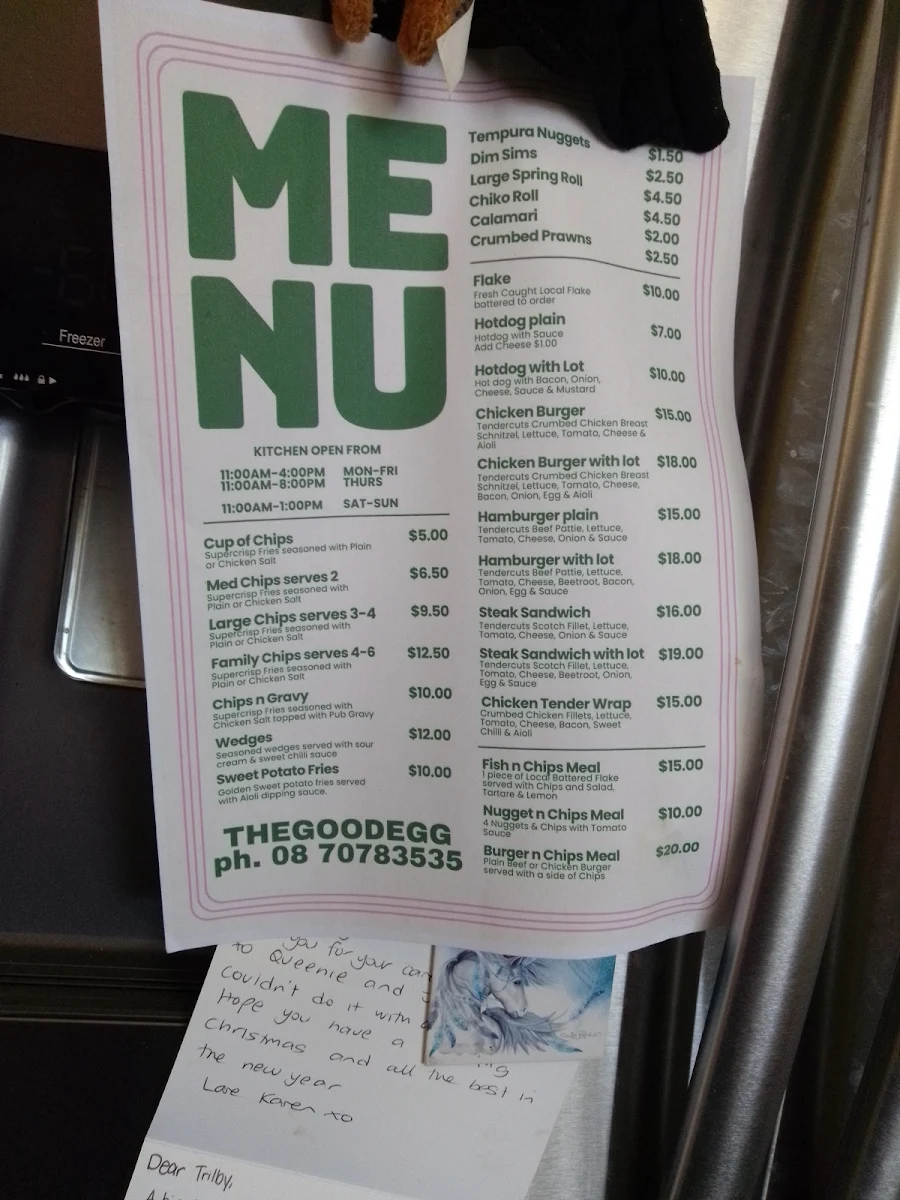 Freezer
ME
NU
KITCHEN OPEN FROM
11:00AM-4:00PM MON-FRI
11:00AM-8:00PM THURS
11:00AM-1:00PM SAT-SUN
Cup of Chips $5.00
Supercrisp Fries seasoned with Plain
or Chicken Salt
Med Chips serves 2 $6.50
Supercrisp Fries seasoned with
Plain or Chicken Salt
Large Chips serves 3-4 $9.50
Supercrisp Fries seasoned with
Plain or Chicken Salt
Family Chips serves 4-6 $12.50
Supercrisp Fries seasoned with
Plain or Chicken Salt
Chips n Gravy $10.00
Supercrisp Fries seasoned with
Chicken Salt topped with Pub Gravy
Wedges $12.00
Seasoned wedges served with sour
cream & sweet chilli sauce
Sweet Potato Fries $10.00
Golden Sweet potato fries served
with Aioli dipping sauce.
THEGOODEGG
ph. 08 70783535
Tempura Nuggets $1.50
Dim Sims $2.50
Large Spring Roll $4.50
Chiko Roll $4.50
Calamari $2.00
Crumbed Prawns $2.50
Flake $10.00
Fresh Caught Local Flake
battered to order
Hotdog plain $7.00
Hotdog with Sauce
Add Cheese $1.00
Hotdog with Lot $10.00
Hot dog with Bacon, Onion,
Cheese, Sauce & Mustard
Chicken Burger $15.00
Tendercuts Crumbed Chicken Breast
Schnitzel, Lettuce, Tomato, Cheese &
Aioli
Chicken Burger with lot $18.00
Tendercuts Crumbed Chicken Breast
Schnitzel, Lettuce, Tomato, Cheese,
Bacon, Onion, Egg & Aioli
Hamburger plain $15.00
Tendercuts Beef Pattie, Lettuce,
Tomato, Cheese, Onion & Sauce
Hamburger with lot $18.00
Tendercuts Beef Pattie, Lettuce,
Tomato, Cheese, Beetroot, Bacon,
Onion, Egg & Sauce
Steak Sandwich $16.00
Tendercuts Scotch Fillet, Lettuce,
Tomato, Cheese, Onion & Sauce
Steak Sandwich with lot $19.00
Tendercuts Scotch Fillet, Lettuce,
Tomato, Cheese, Beetroot, Onion,
Egg & Sauce
Chicken Tender Wrap $15.00
Crumbed Chicken Fillets, Lettuce,
Tomato, Cheese, Bacon, Sweet
Chilli & Aioli
Fish n Chips Meal $15.00
1 piece of Local Battered Flake
served with Chips and Salad,
Tartare & Lemon
Nugget n Chips Meal $10.00
4 Nuggets & Chips with Tomato
Sauce
Burger n Chips Meal $20.00
Plain Beef or Chicken Burger
served with a side of Chips
you for your
to Queenie and
couldn't do it with
Hope you have a
Christmas and all the best in
the new year
Love Karen xo
Dear Trilby,